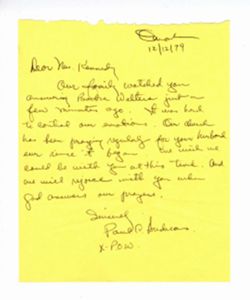 Omaha
12/12/79
Dear Mrs. Kennedy
Our family watched you
answering Barbara Walters just a
few minutes ago. It was hard
to control our emotions. Our church
has been praying regularly for your husband
ever since it began. We wish we
could be with you at this time. And
we will rejoice with you when
God answers our prayers.
Sincerely
Paul
X-P.O.W.